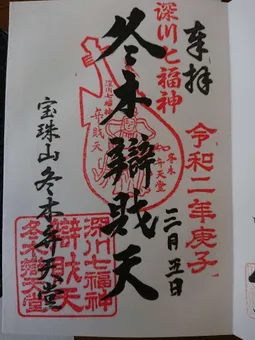 奉拝
深川七福神
令和二年庚子
二月五日
冬木辯戝天
深川七福神
弁戝天
冬木
弁天堂
宝珠山冬木弁天堂
深川七福神
辯戝天
冬木辯天堂